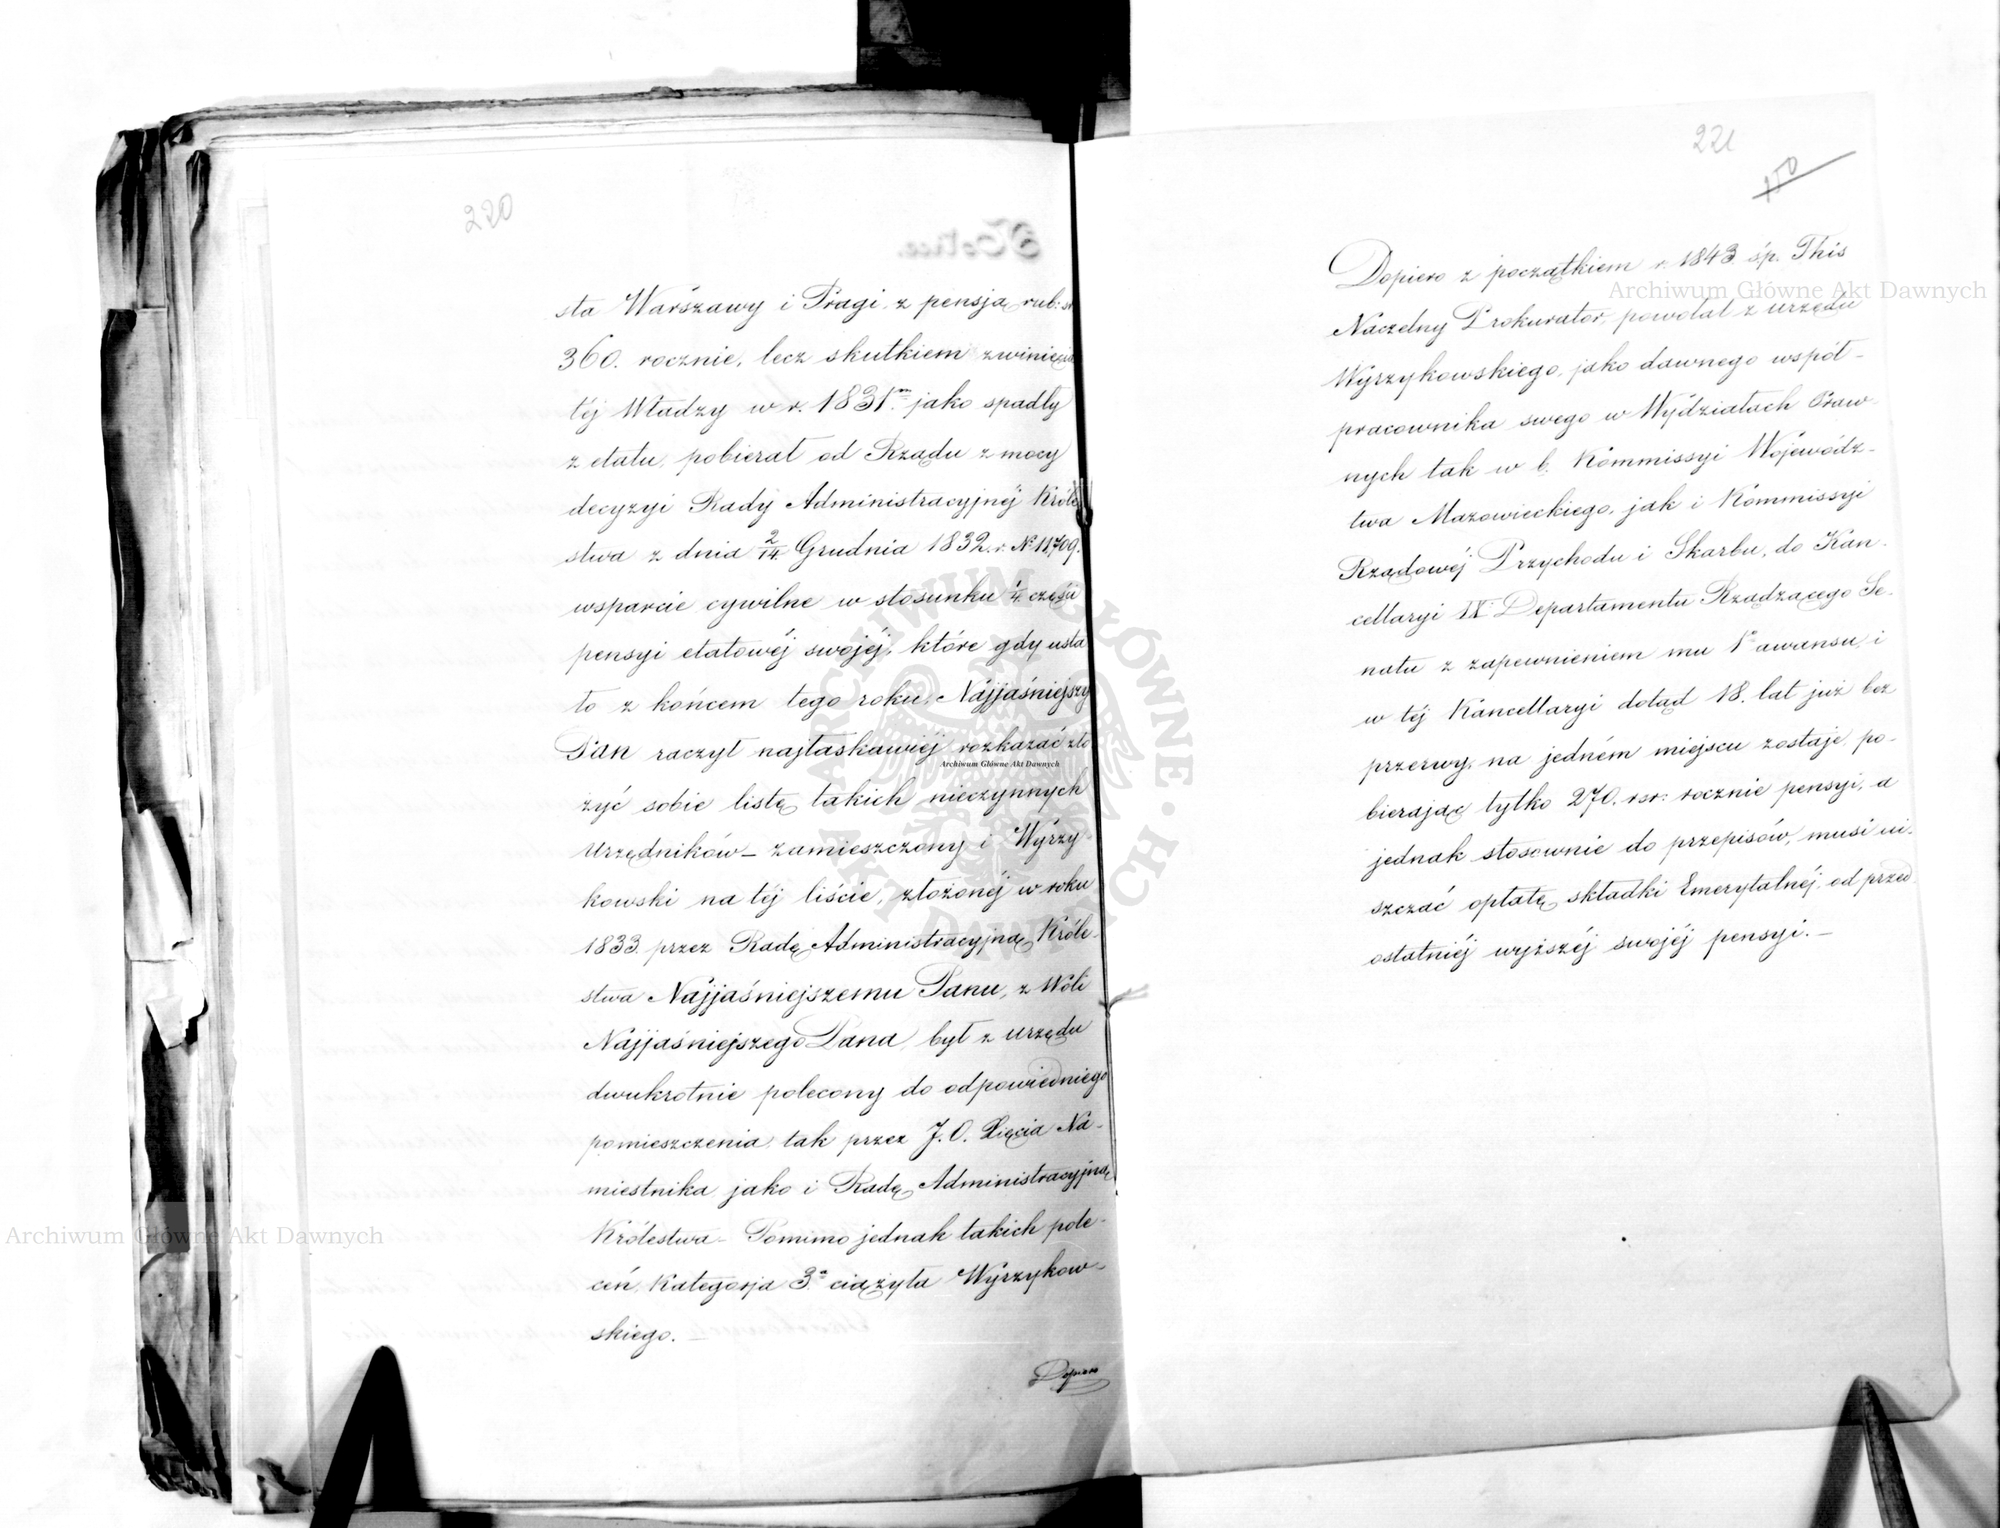 220
sta Warszawy i Pragi, z pensją rub: sr.
360. rocznie, lecz skutkiem zwinięcia
téj Władzy w r. 1831.m jako spadły
z etatu, pobierał od Rządu z mocy
decyzyi Rady Administracyjnéj Króle
stwa z dnia 2/14 Grudnia 1832. r. No 11,709.
wsparcie cywilne w stosunku 1/4 części
pensyi etatowéj swojéj, które gdy usta
ło z końcem tego roku, Najjaśniejszy
Pan raczył najłaskawiéj rozkazać zło
żyć sobie listę takich nieczynnych
Urzędników _ zamieszczony i Wyrzy
kowski na téj liście, złożonéj w roku
1833. przez Radę Administracyjną Króle-
stwa Najjaśniejszemu Panu, z Woli
Najjaśniejszego Pana, był z urzędu
dwukrotnie polecony do odpowiedniego
pomieszczenia, tak przez J. O. Xięcia Na-
miestnika, jako i Radę Administracyjną
Królestwa - Pomimo jednak takich pole-
ceń, Kategorja 3.a ciążyła Wyrzykow-
skiego.
Dopiero
221
Dopiero z początkiem r. 1843 śp. This
Naczelny Prokurator, powołał z urzędu
Wyrzykowskiego, jako dawnego współ-
pracownika swego w Wydziałach Praw-
nych tak w b. Kommissyi Wojewódz-
twa Mazowieckiego, jak i Kommissyi
Rządowéj Przychodu i Skarbu, do Kan-
cellaryi IX. Departamentu Rządzącego Se-
natu z zapewnieniem mu awansu, i
w téj Kancellaryi dotąd 18. lat już bez
przerwy, na jedném miejscu zostaje, po-
bierając tylko 270. rsr: rocznie pensyi, a
jednak stosownie do przepisów, musi ui-
szczać opłatę składki Emerytalnéj, od przed
ostatniéj wyższéj swojéj pensyi. _
Archiwum Główne Akt Dawnych
Archiwum Główne Akt Dawnych
Archiwum Główne Akt Dawnych
ARCHIWUM GŁÓWNE AKT DAWNYCH